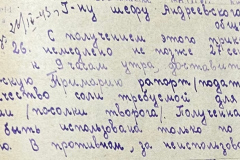 21/IX-43. Г-ну шефу Андреевского
26. С получением этого
немедленно не позже 27 сен
к 9 часам утра доставить
Примарию рапорт /подат
чество соли требуемой для
/посолки творога/. Полученна
быть использована только по
в. В противном, за неиспользов